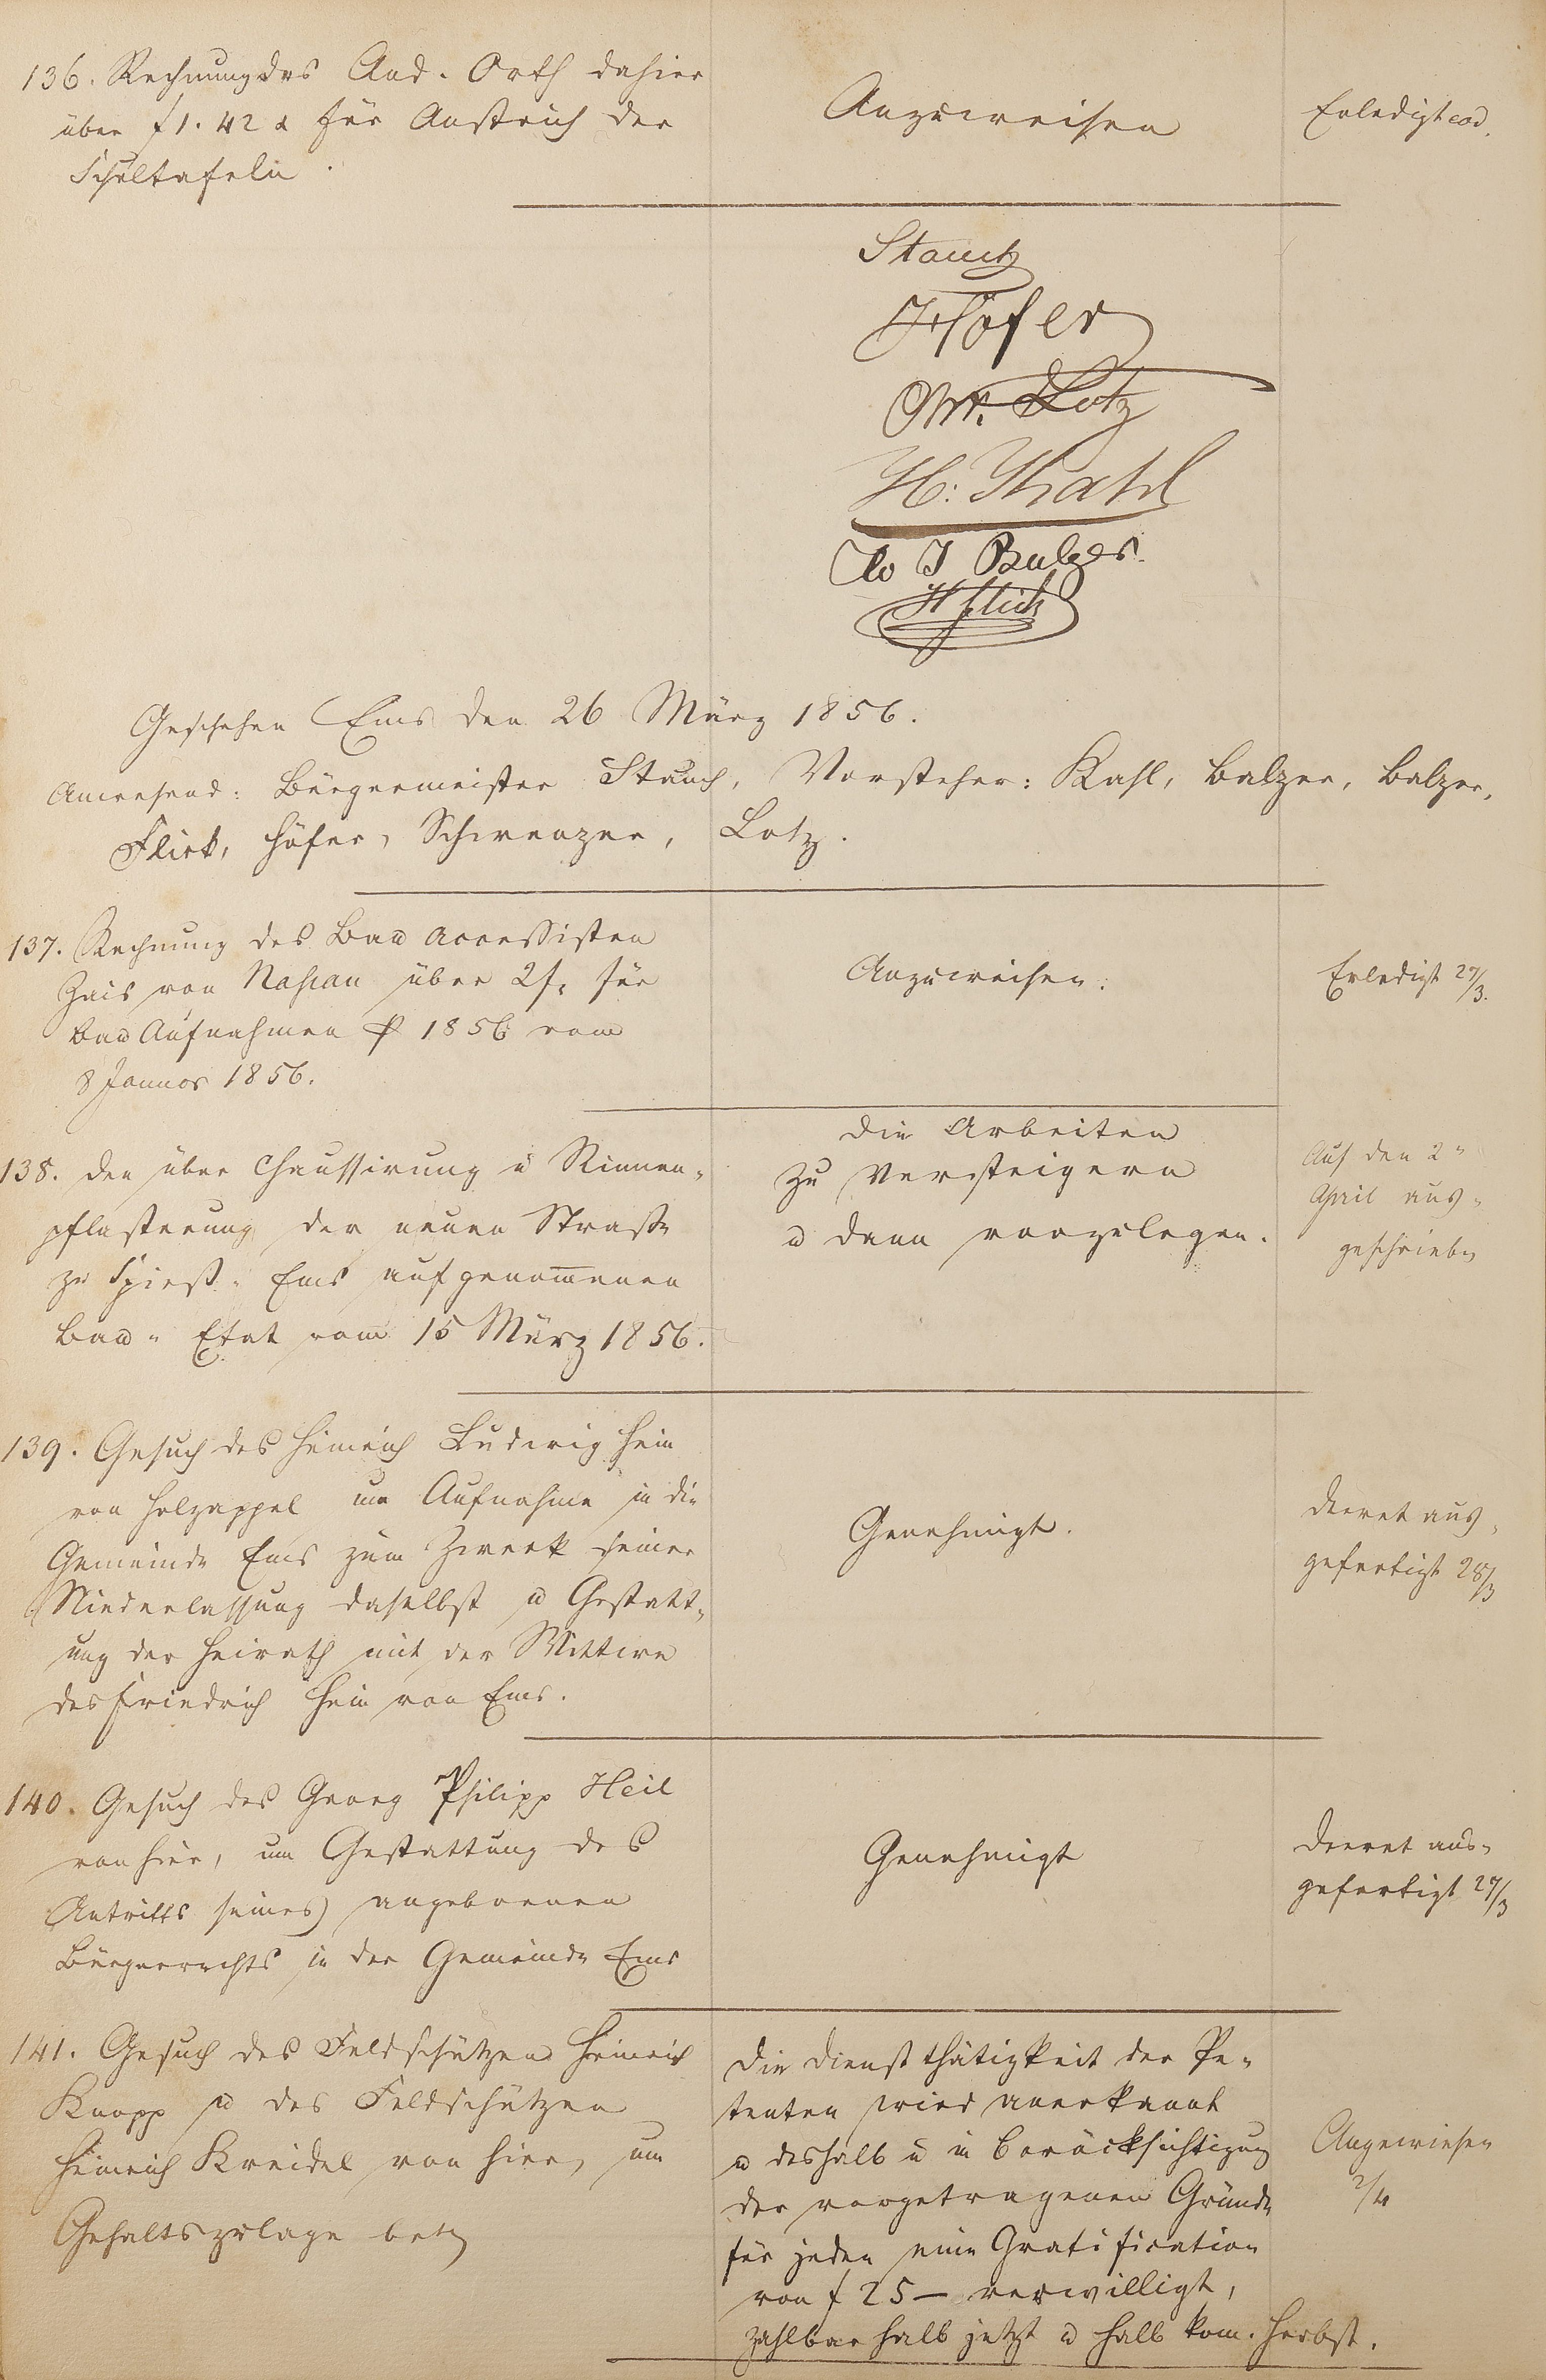 136. Rechnung des And. Orth dahier
über f 1. 42 x für Anstrich der
Schultafeln.
Anzuweisen
Erledigt eod.
Stauch
Höfer
Lotz
H: Kahl
J Balzer.
H flick
Geschehen Ems den 26 März 1856.
Anwesend: Bürgermeister Stauch, Vorsteher: Kahl, Balzer, Balzer,
Flick, Höfer, Schwenzer, Lotz.
137. Rechnung des Bau Accessisten
Zais von Nassau über 2 f. für
Bau Aufnahmen p 1856 vom
8 Januar 1856.
Anzuweisen.
Erledigt 27/3.
138. Der über Chaussirung u Rinnen-
pflasterung der neuen Straße
zu Spieß-Ems aufgenomenen
Bau-Etat vom 15 März 1856.
Die Arbeiten
zu versteigern
u dann vorzulegen.
Auf den 2"
April aus-
geschrieben
139. Gesuch des Heinrich Ludwig Hein
von Holzappel um Aufnahme in die
Gemeinde Ems zum Zweck seiner
Niederlassung daselbst u Gestatt-
ung der Heirath mit der Wittwe
des Friedrich Hein von Ems.
Genehmigt.
Decret aus-
gefertigt 28/3
140. Gesuch des Georg Philipp Heil
von hier, um Gestattung des
Antritts seines angebornen
Bürgerrechts in der Gemeinde Ems
Genehmigt
Decret aus-
gefertigt 27/3
141. Gesuch des Feldschützen Heinrich
Knopp u des Feldschützen
Heinrich Kreidel von hier, um
Gehaltszulage betr
Die Dienstthätigkeit der Pe-
tenten wird anerkannt
u deshalb u in Berücksichtigung
der vorgetragenen Gründe
für jeden eine Gratification
von f 25 — verwilligt,
zahlbar halb jetzt u halb kom. Herbst.
Angewiesen
2/4